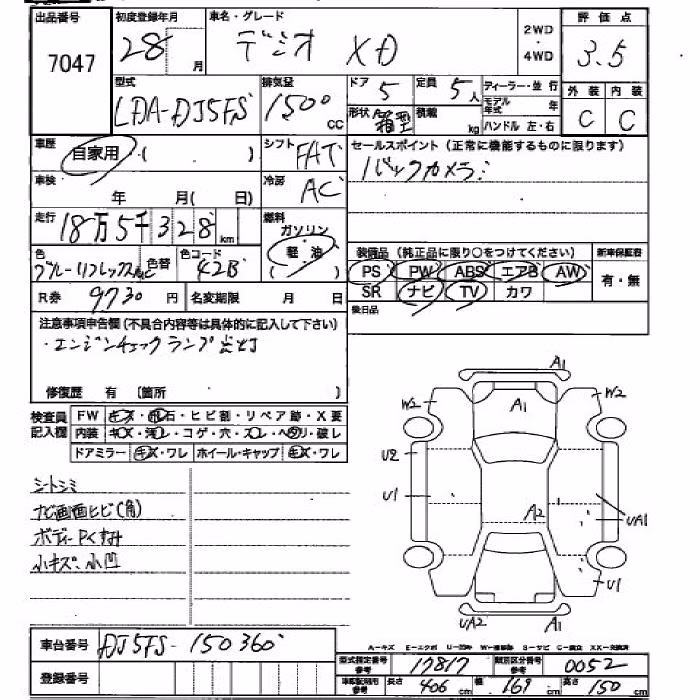 出品番号 初度登録年月 車名・グレード 2WD・4WD 評価点
7047 28 月 デミオ XD 3.5
型式 LDA-DJ5FS 排気量 1500 CC ドア 5 定員 5人 ディーラー・並行
形状 箱型 積載 kg モデル年式 年 ハンドル 左・右
外装 内装
C C
車歴 自家用・( ) シフト FAT セールスポイント(正常に機能するものに限ります)
バックカメラ
車検 年 月( 日) 冷房 AC
走行 18万5千328km 燃料 ガソリン 軽・油 ( )
色 ブルーリフレックスMC 色替 色コード 42B
装備品(純正品に限り○をつけてください) 新車保証書
PS PW ABS エアB AW 有・無
SR ナビ TV カワ
R券 9730 円 名変期限 月 日 後日品
注意事項申告欄(不具合内容等は具体的に記入して下さい)
・エンジンチェックランプ点灯
修復歴 有 [箇所 ]
検査員記入欄 FW キズ・飛石・ヒビ割・リペア跡・X要
内装 キズ・汚レ・コゲ・穴・スレ・ヘタリ・破レ
ドアミラー キズ・ワレ ホイール・キャップ キズ・ワレ
シートシミ
ナビ画面ヒビ(角)
ボディーPくすみ
小キズ、小凹
A1
W2 A1 W2
U2
U1 A2 UA1
U1
UA2 A1
車台番号 DJ5FS-150360
A-キズ E-エクボ S-サビ
型式指定番号 参考 17817 類別区分番号 参考 0052
登録番号
長さ 406 cm 幅 169 cm 高さ 150 cm